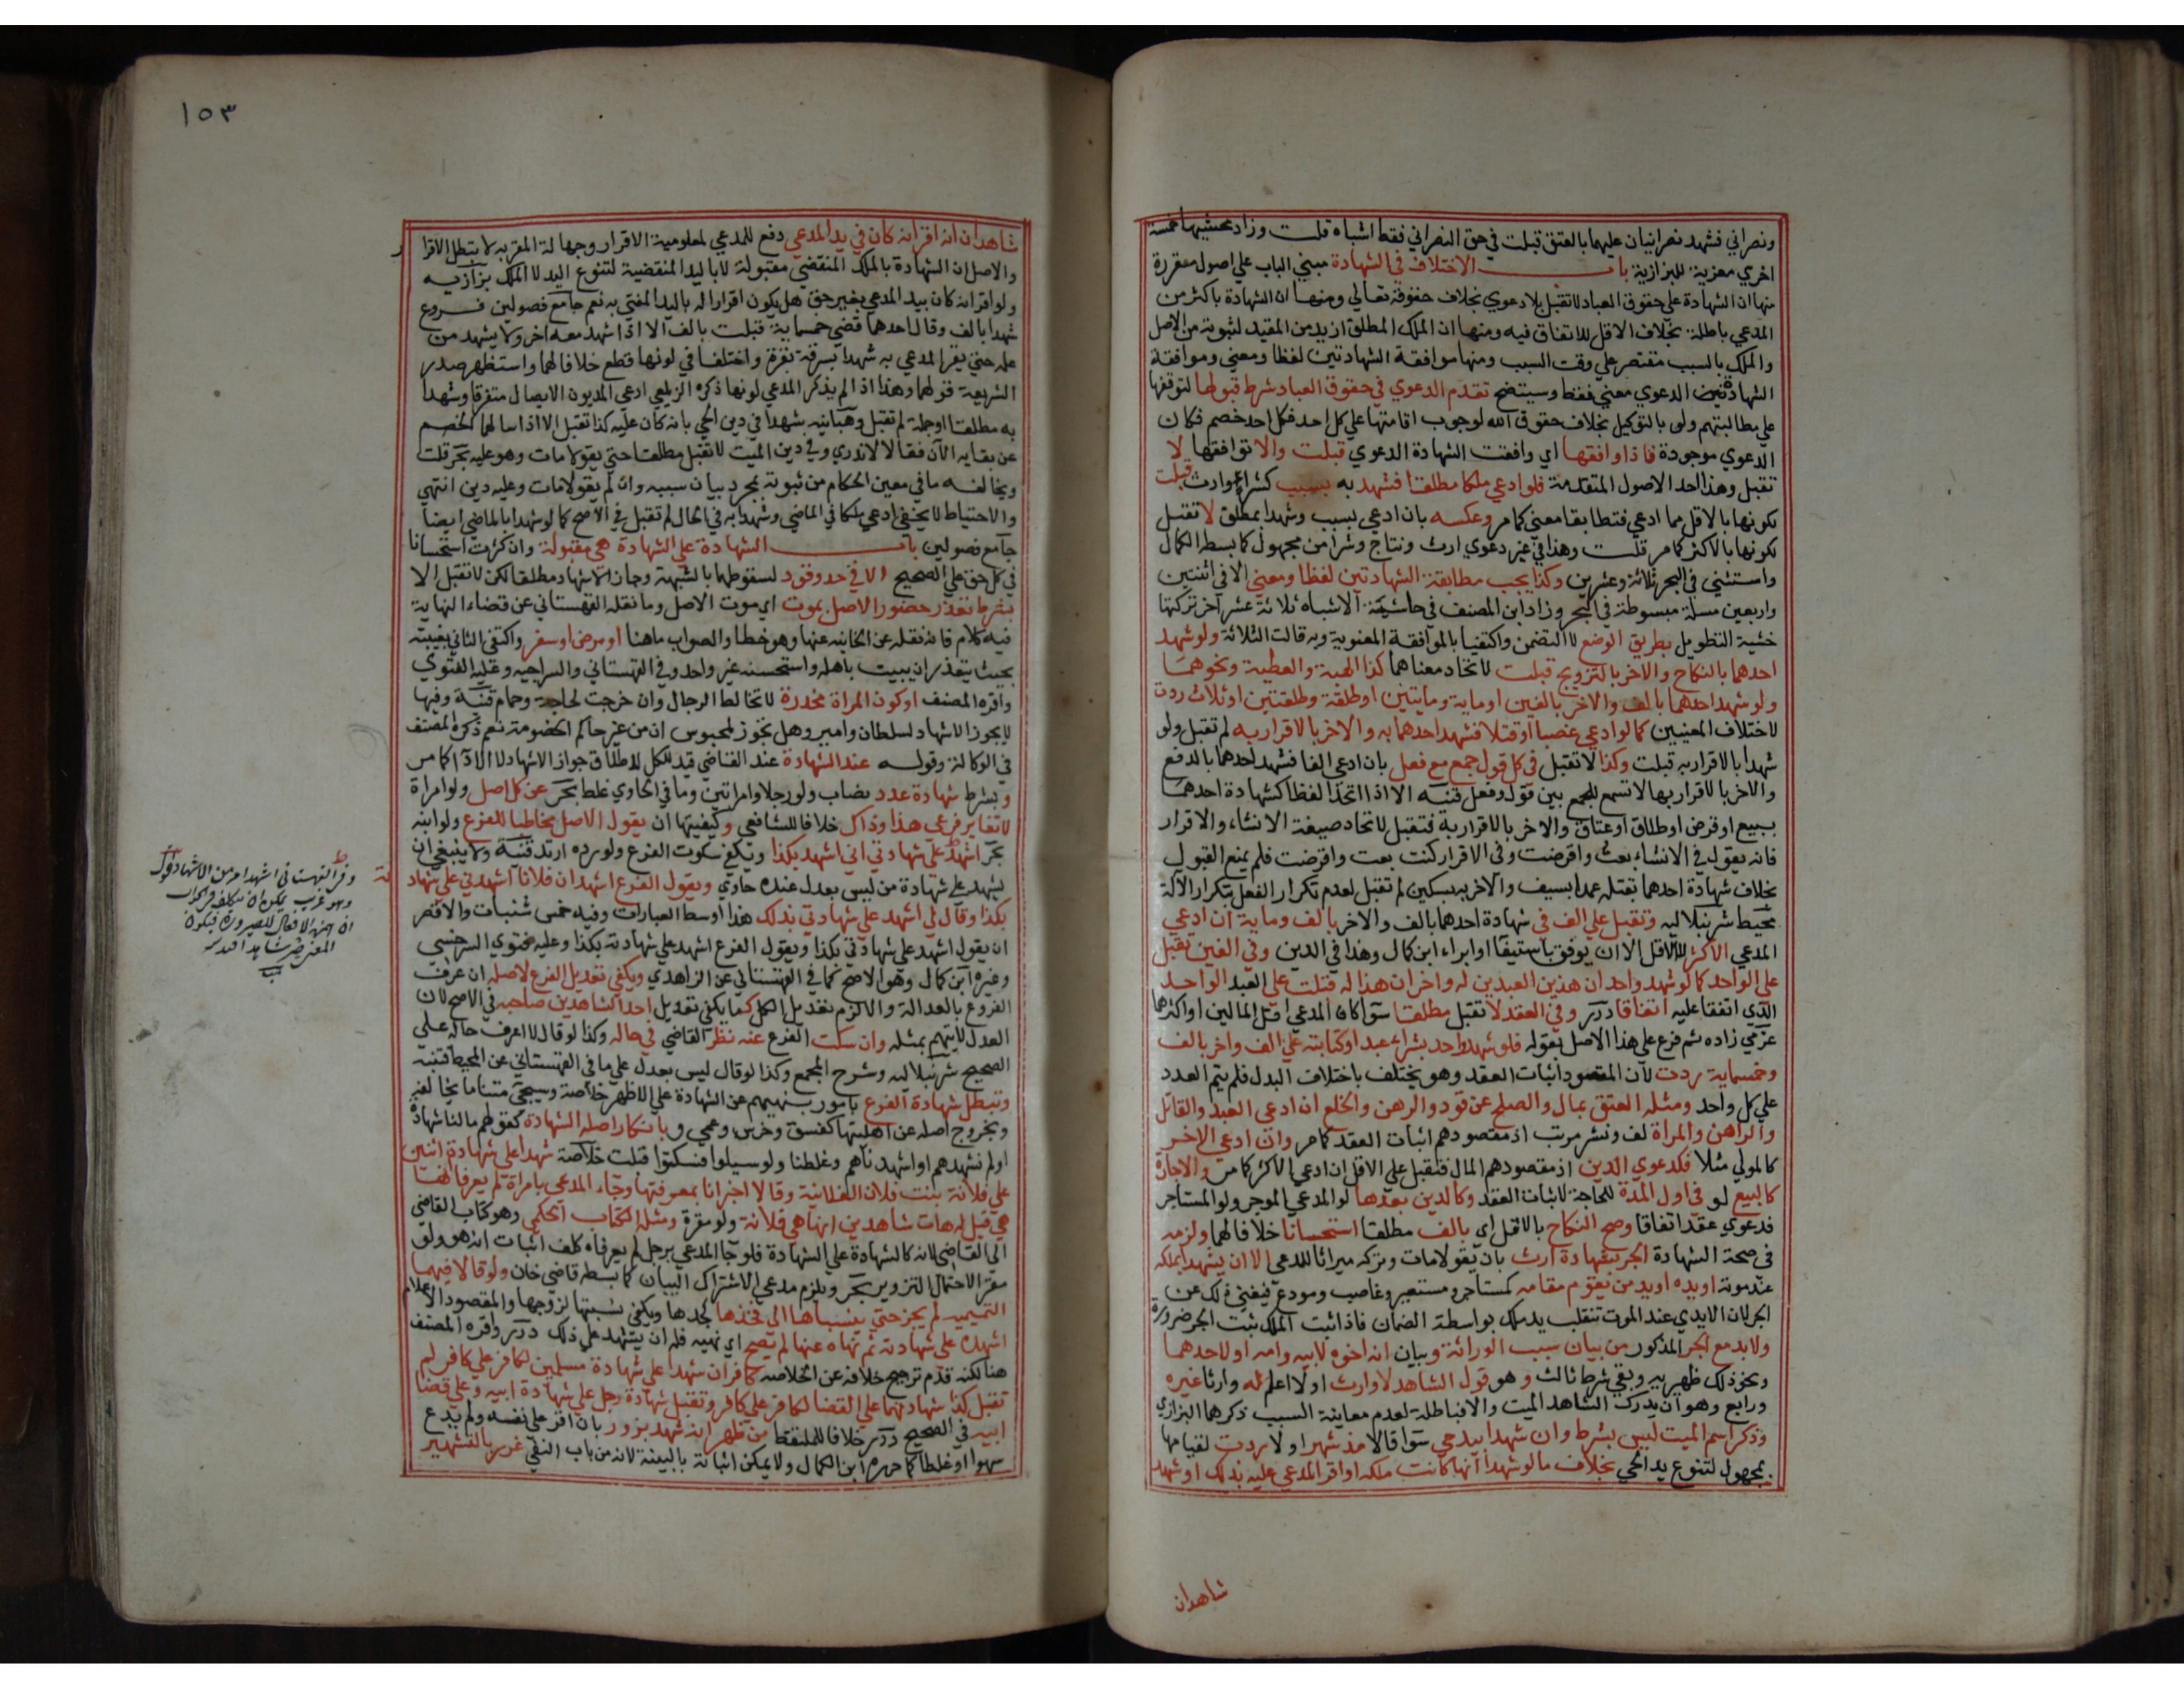 ونصراني فشهد نصرانيان عليهما بالعتق قبلت في حق النصراني فقط اشباه قلت وزاد محشيها خمسة
اخري معزية للبزازية باب الاختلاف في الشهادة مبني الباب علي اصول مقررة
منها ان الشهادة علي حقوق العباد لا تقبل بلا دعوي بخلاف حقوقه تعالي ومنها ان الشهادة باكثر من
المدعي باطلة بخلاف الاقل للاتفاق فيه ومنها ان الملك المطلق ازيد من المقيد لثبوته من الاصل
والملك بالسبب مقتصر علي وقت السبب ومنها موافقة الشهادتين لفظا ومعني وموافقة
الشهادة الدعوي معني فقط وسيتضح تقدم الدعوي في حقوق العباد شرط قبولها لتوقفها
علي مطالبتهم ولو بالتوكيل بخلاف حقوق الله لوجوب اقامتها علي كل احد فكل احد خصم فكان
الدعوي موجودة فاذا وافقها اي وافقت الشهادة الدعوي قبلت والا توافقها لا
تقبل وهذا احد الاصول المتقدمة فلو ادعي ملكا مطلقا فشهد به بسبب كشراء اوارث قبلت
لكونها بالاقل مما ادعي فتطابقا معني كما مر وعكسه بان ادعي بسبب وشهدا بمطلق لا تقبل
لكونها بالاكثر كما مر قلت وهذا في غير دعوي ارث ونتاج وشرا من مجهول كما بسطه الكمال
واستثني في البحر ثلاثة وعشرين وكذا يجب مطابقة الشهادتين لفظا ومعني الا في اثنتين
واربعين مسلة مبسوطة في البحر وزاد ابن المصنف في حاشية الاشباه ثلاثة عشر اخر تركتها
خشية التطويل بطريق الوضع لا التضمن واكتفيا بالموافقة المعنوية وبه قالت الثلاثة ولو شهد
احدهما بالنكاح والاخر بالتزويج قبلت لاتحاد معناهما كذا الهبة والعطية ونحوهما
ولو شهد احدهما بالف والاخر بالفين اوماية ومايتين اوطلقة وطلقتين اوثلاث ردت
لاختلاف المعنيين كما لو ادعي غصبا اوقتلا فشهد احدهما به والاخر بالاقرار به لم تقبل ولو
شهدا بالاقرار به قبلت وكذا لا تقبل في كل قول جمع مع فعل بان ادعي الفا فشهد احدهما بالدفع
والاخر بالاقرار بها لا تسمع للجمع بين قول وفعل قنيه الا اذا اتحدا لفظا كشهادة احدهما
ببيع اوقرض اوطلاق اوعتاق والاخر بالاقرار به فتقبل لاتحاد صيغة الانشاء والاقرار
فانه يقول في الانشاء بعت واقرضت وفي الاقرار كنت بعت واقرضت فلم يمنع القبول
بخلاف شهادة احدهما بقتله عمدا بسيف والاخر به بسكين لم تقبل لعدم تكرار الفعل بتكرار الآلة
محيط شرنبلاليه وتقبل علي الف في شهادة احدهما بالف والاخر بالف وماية ان ادعي
المدعي الاكثر لا الاقل الا ان يوفق باستيفا اوابراء ابن كمال وهذا في الدين وفي العين تقبل
علي الواحد كما لو شهد واحد ان هذين العبدين له واخر ان هذا له قبلت علي العبد الواحد
الذي اتفقا عليه اتفاقا درر وفي العقد لا تقبل مطلقا سوا كان المدعي اقل المالين او اكثرهما
عزمي زاده ثم فرع علي هذا الاصل بقوله فلو شهد واحد بشراء عبد اوكتابته علي الف واخر بالف
وخمسماية ردت لان المقصود اثبات العقد وهو يختلف باختلاف البدل فلم يتم العدد
علي كل واحد ومثله العتق بمال والصلح عن قود والرهن والخلع ان ادعي العبد والقاتل
والراهن والمراة لف ونشر مرتب اذ مقصودهم اثبات العقد كما مر وان ادعي الاخر
كالمولي مثلا فكدعوي الدين اذ مقصودهم المال فتقبل علي الاقل ان ادعي الاكثر كما مر والاجارة
كالبيع لو في اول المدة للحاجة لاثبات العقد وكالدين بعدها لو المدعي الموجر ولو المستاجر
فدعوي عقد اتفاقا وصح النكاح بالاقل اي بالف مطلقا استحسانا خلافا لهما ولزم
في صحة الشهادة الجر بشهادة ارث بان يقولا مات وتركه ميراثا للمدعي الا ان يشهدا بملكه
عند موته اويده اويد من يقوم مقامه كمستاجر ومستعير وغاصب ومودع فيغني ذلك عن
الجر لان الايدي عند الموت تنقلب يد ملك بواسطة الضمان فاذا ثبت الملك ثبت الجر ضرورة
ولا بد مع الجر المذكور من بيان سبب الوراثة وبيان انه اخوه لابيه وامه او لاحدهما
ونحو ذلك ظهيريه وبقي شرط ثالث وهو قول الشاهد لا وارث او لا اعلم له وارثا غيره
ورابع وهو ان يدرك الشاهد الميت والا فباطلة لعدم معاينة السبب ذكرهما البزازي
وذكر اسم الميت ليس بشرط وان شهدا بيد حي سوا قالا مذ شهر او لا ردت لقيامها
بمجهول لتنوع يد الحي بخلاف ما لو شهدا انها كانت ملكه او اقر المدعي عليه بذلك او شهد
شاهدان
١٥٣
شاهدان انه اقر انه كان في يد المدعي دفع للمدعي لمعلومية الاقرار وجهالة المقر به لا تبطل الاقرار
والاصل ان الشهادة بالملك المنقضي مقبولة لا باليد المنقضية لتنوع اليد لا الملك بزازيه
ولو اقر انه كان بيد المدعي بغير حق هل يكون اقرارا له باليد المفتي به نعم جامع فصولين فروع
شهدا بالف وقال احدهما قضي خمسماية قبلت بالف الا اذا شهد معه اخر ولا يشهد من
علمه حتي يقر المدعي به شهدا بسرقة بقرة واختلفا في لونها قطع خلافا لهما واستظهر صدر
الشريعة قولهما وهذا اذا لم يذكر المدعي لونها ذكره الزيلعي ادعي المديون الايصال متفرقا وشهدا
به مطلقا اوجملة لم تقبل وهبانيه شهدا في دين الحي بانه كان عليه كذا تقبل الا اذا سالهما الخصم
عن بقايه الآن فقالا لا ندري وفي دين الميت لا تقبل مطلقا حتي يقولا مات وهو عليه بحر قلت
ويخالفه ما في معين الحكام من ثبوته بمجرد بيان سببه وان لم يقولا مات وعليه دين انتهي
والاحتياط لا يخفي ادعي ملكا في الماضي وشهدا به في الحال لم تقبل في الاصح كما لو شهدا بالماضي ايضا
جامع فصولين باب الشهادة علي الشهادة هي مقبولة وان كثرت استحسانا
في كل حق علي الصحيح الا في حد وقود لسقوطهما بالشبهة وجاز الاشهاد مطلقا لكن لا تقبل الا
بشرط تعذر حضور الاصل بموت اي موت الاصل وما نقله القهستاني عن قضاء النهاية
فيه كلام فانه نقله عن الخانيه عنها وهو خطا والصواب ما هنا اومرض اوسفر واكتفي الثاني بغيبته
بحيث يتعذر ان يبيت باهله واستحسنه غير واحد وفي القهستاني والسراجيه وعليه الفتوي
واقره المصنف اوكون المراة مخدرة لا تخالط الرجال وان خرجت لحاجة وحمام قنيه وفيها
لا يجوز الاشهاد لسلطان وامير وهل يجوز لمحبوس ان من غير حاكم الخصومة نعم ذكره المصنف
في الوكالة وقوله عند الشهادة عند القاضي قيد للكل لاطلاق جواز الاشهاد لا الادآ كما مر
وبشرط شهادة عدد نصاب ولو رجلا وامراتين وما في الحاوي غلط بحر عن كل اصل ولو امراة
لا تغاير فرعي هذا وذاك خلافا للشافعي وكيفيتها ان يقول الاصل مخاطبا للفرع ولو ابنه
بحر اشهد علي شهادتي اني اشهد بكذا ويكفي سكوت الفرع ولو رده ارتد قنيه ولا ينبغي ان
يشهد علي شهادة من ليس بعدل عنده حاوي ويقول الفرع اشهد ان فلانا اشهدني علي شهادته
بكذا وقال لي اشهد علي شهادتي بذلك هذا اوسط العبارات وفيه خمس شنيات والاقصر
ان يقول اشهد علي شهادتي بكذا ويقول الفرع اشهد علي شهادته بكذا وعليه فتوي السرخسي
وغيره ابن كمال وهو الاصح كما في القهستاني عن الزاهدي ويكفي تعديل الفرع لاصله ان عرف
الفروع بالعدالة والا لزم تعديل الكل كما يكفي تعديل احد الشاهدين صاحبه في الاصح لان
العدل لا يتهم بمثله وان سكت الفرع عنه نظر القاضي في حاله وكذا لو قال لا اعرف حاله علي
الصحيح شرنبلاليه وشرح المجمع وكذا لو قال ليس بعدل علي ما في القهستاني عن المحيط فتنبه
وتبطل شهادة الفرع بامور بنهيهم عن الشهادة علي الاظهر خلاصة وسيجي متنا ما يخالفه
وبخروج اصله عن اهليتها كفسق وخرس وعمي وبانكار اصله الشهادة كقولهم مالنا شهادة
اولم نشهدهم اواشهدناهم وغلطنا ولو سيلوا فسكتوا قبلت خلاصة شهدا علي شهادة اثنين
علي فلانة بنت فلان الفلانية وقالا اخبرانا بمعرفتها وجاء المدعي بامراة لم يعرفا انها
هي قيل له هات شاهدين انها هي فلانة ولو مقرة ومثله الكتاب الحكمي وهو كتاب القاضي
الي القاضي لانه كالشهادة علي الشهادة فلو جا المدعي برجل لم يعرفاه كلف اثبات انه هو ولو
مقرا لاحتمال التزوير بحر ويلزم مدعي الاشتراك البيان كما بسطه قاضي خان ولو قالا فيهما
التميمية لم يجز حتي ينسباها الي فخذها كجدها ويكفي نسبتها لزوجها والمقصود الاعلام
اشهده علي شهادته ثم نهاه عنها لم يصح اي نهيه فله ان يشهد علي ذلك درر واقره المصنف
هنا لكنه قدم ترجيح خلافه عن الخلاصه كافران شهدا علي شهادة مسلمين لكافر علي كافر لم
تقبل كذا شهادتهما علي القضا لكافر علي كافر وتقبل شهادة رجل علي شهادة ابيه وعلي قضا
ابيه في الصحيح درر خلافا للملتقط من ظهر انه شهد بزور بان اقر علي نفسه ولم يدع
سهوا اوغلطا كما حرره ابن الكمال ولا يمكن اثباته بالبينة لانه من باب النفي عزر بالتشهير